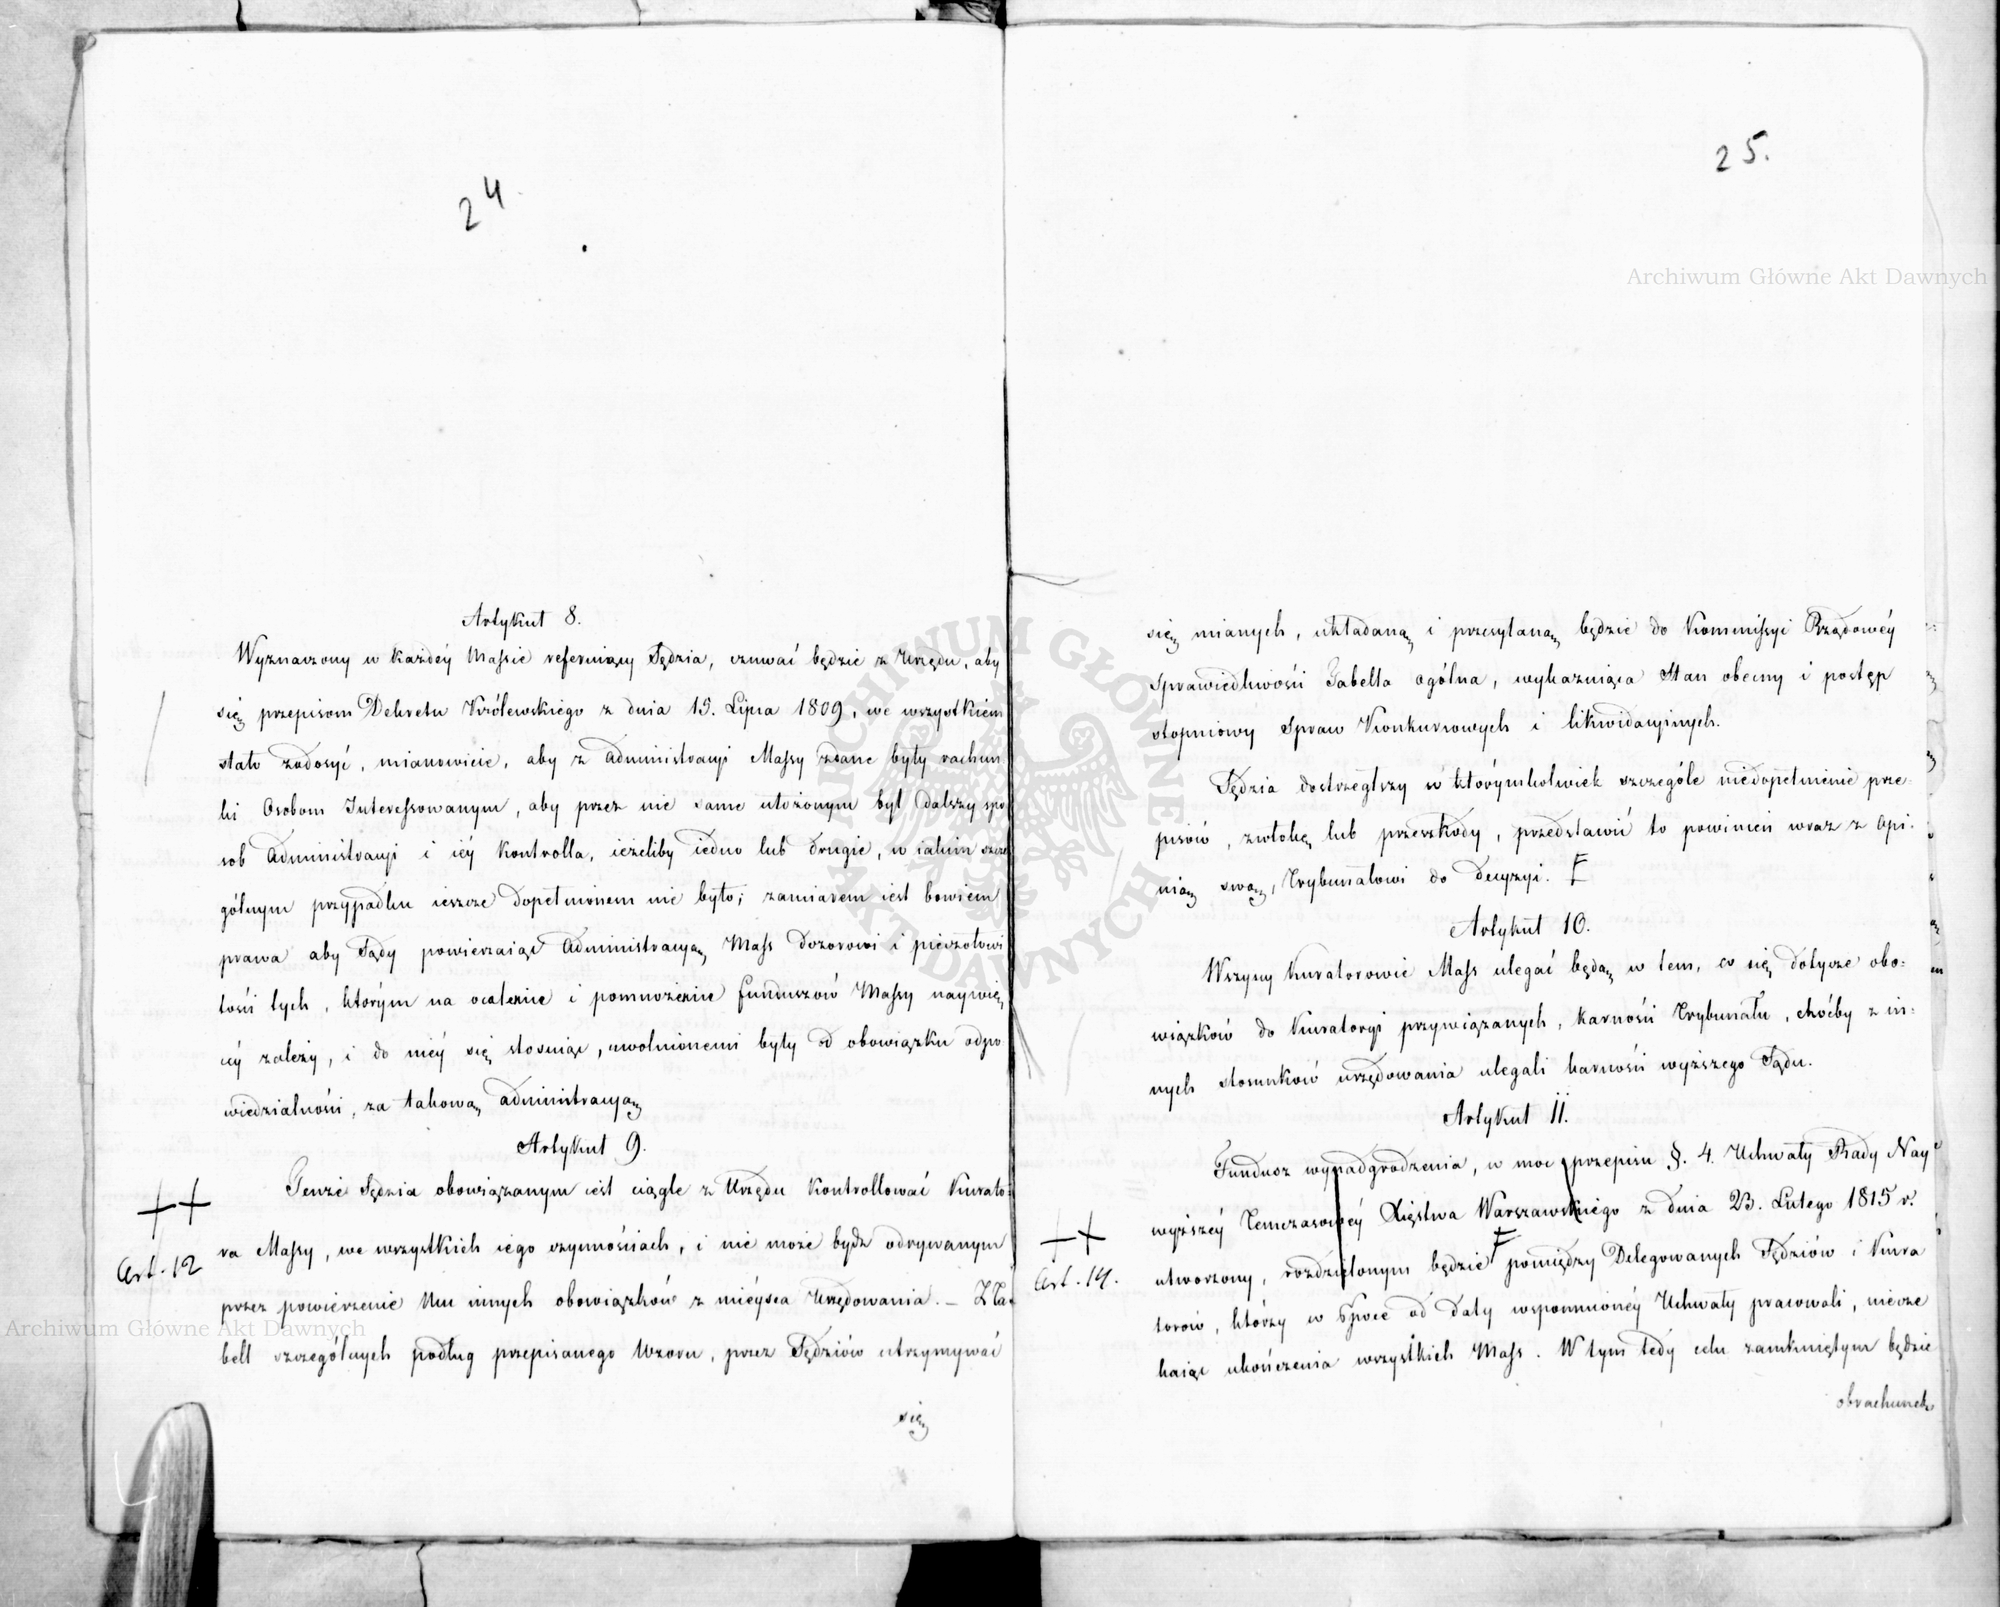 24.
Artykuł 8.
Wyznaczony w każdey Massie referuiący Sędzia, czuwać będzie z Urzędu, aby
się przepisom Dekretu Królewskiego z dnia 15. Lipca 1809, we wszystkiem
stało zadosyć, mianowicie, aby z Administracyi Massy zdane były rachun
ki Osobom Interessowanym, aby przez nie same ułożonym był dalszy spo
sob Administracyi i iey Kontrolla, ieżeliby iedno lub drugie, w iakim szcze
gólnym przypadku ieszcze dopełnionem nie było; zamiarem iest bowiem
prawa aby Sądy powierzaiąc Administracyą Mass dozorowi i pieczołowi
tości tych, którym na ocalenie i pomnożenie funduszów Massy naywię
cey zależy, i do niey się stosuiąc, uwolnionemi były od obowiązku odpo
wiedzialności, za takową Administracyą
Artykuł 9.
Tenże Sędzia obowiązanym iest ciągle z Urzędu Kontrollować Kurato-
++
ra Massy, we wszystkich iego czynnościach, i nie może bydź odrywanym
Art. 12
przez powierzenie Mu innych obowiązków z mieysca Urzędowania. – Z Ta-
bell szczególnych podług przepisanego Wzoru, przez Sędziów utrzymywać
się
25.
się mianych, układaną i przesyłaną będzie do Kommissyi Rządowéy
Sprawiedliwości Tabella ogólna, wykazuiąca Stan obecny i postęp
stopniowy Spraw Konkursowych i likwidacyinych.
Sędzia dostrzegłszy w którymkolwiek szczególe niedopełnienie prze-
pisów, zwłokę lub przeszkody, przedstawić to powinien wraz z Opi-
nią swą, Trybunałowi do decyzyi. F
Artykuł 10.
Wszyscy Kuratorowie Mass ulegać będą w tem, co się dotycze obo-
wiązków do Kuratoryi przywiązanych, karności Trybunału, choćby z in-
nych stosunków urzędowania ulegali karności wyższego Sądu.
Artykuł 11.
Fundusz wynadgrodzenia, w moc przepisu §. 4. Uchwały Rady Nay
wyższey Temczasowey Xięstwa Warszawskiego z dnia 23. Lutego 1815 r.
++
utworzony, rozdzielonym będzie F pomiędzy Delegowanych Sędziów i Kura
Art. 14.
torów, którzy w Epoce od daty wspomnioney Uchwały pracowali, niecze
kaiąc ukończenia wszystkich Mass. W tym tedy celu zamkniętym będzie
obrachunek
Archiwum Główne Akt Dawnych
Archiwum Główne Akt Dawnych
ARCHIWUM GŁÓWNE AKT DAWNYCH